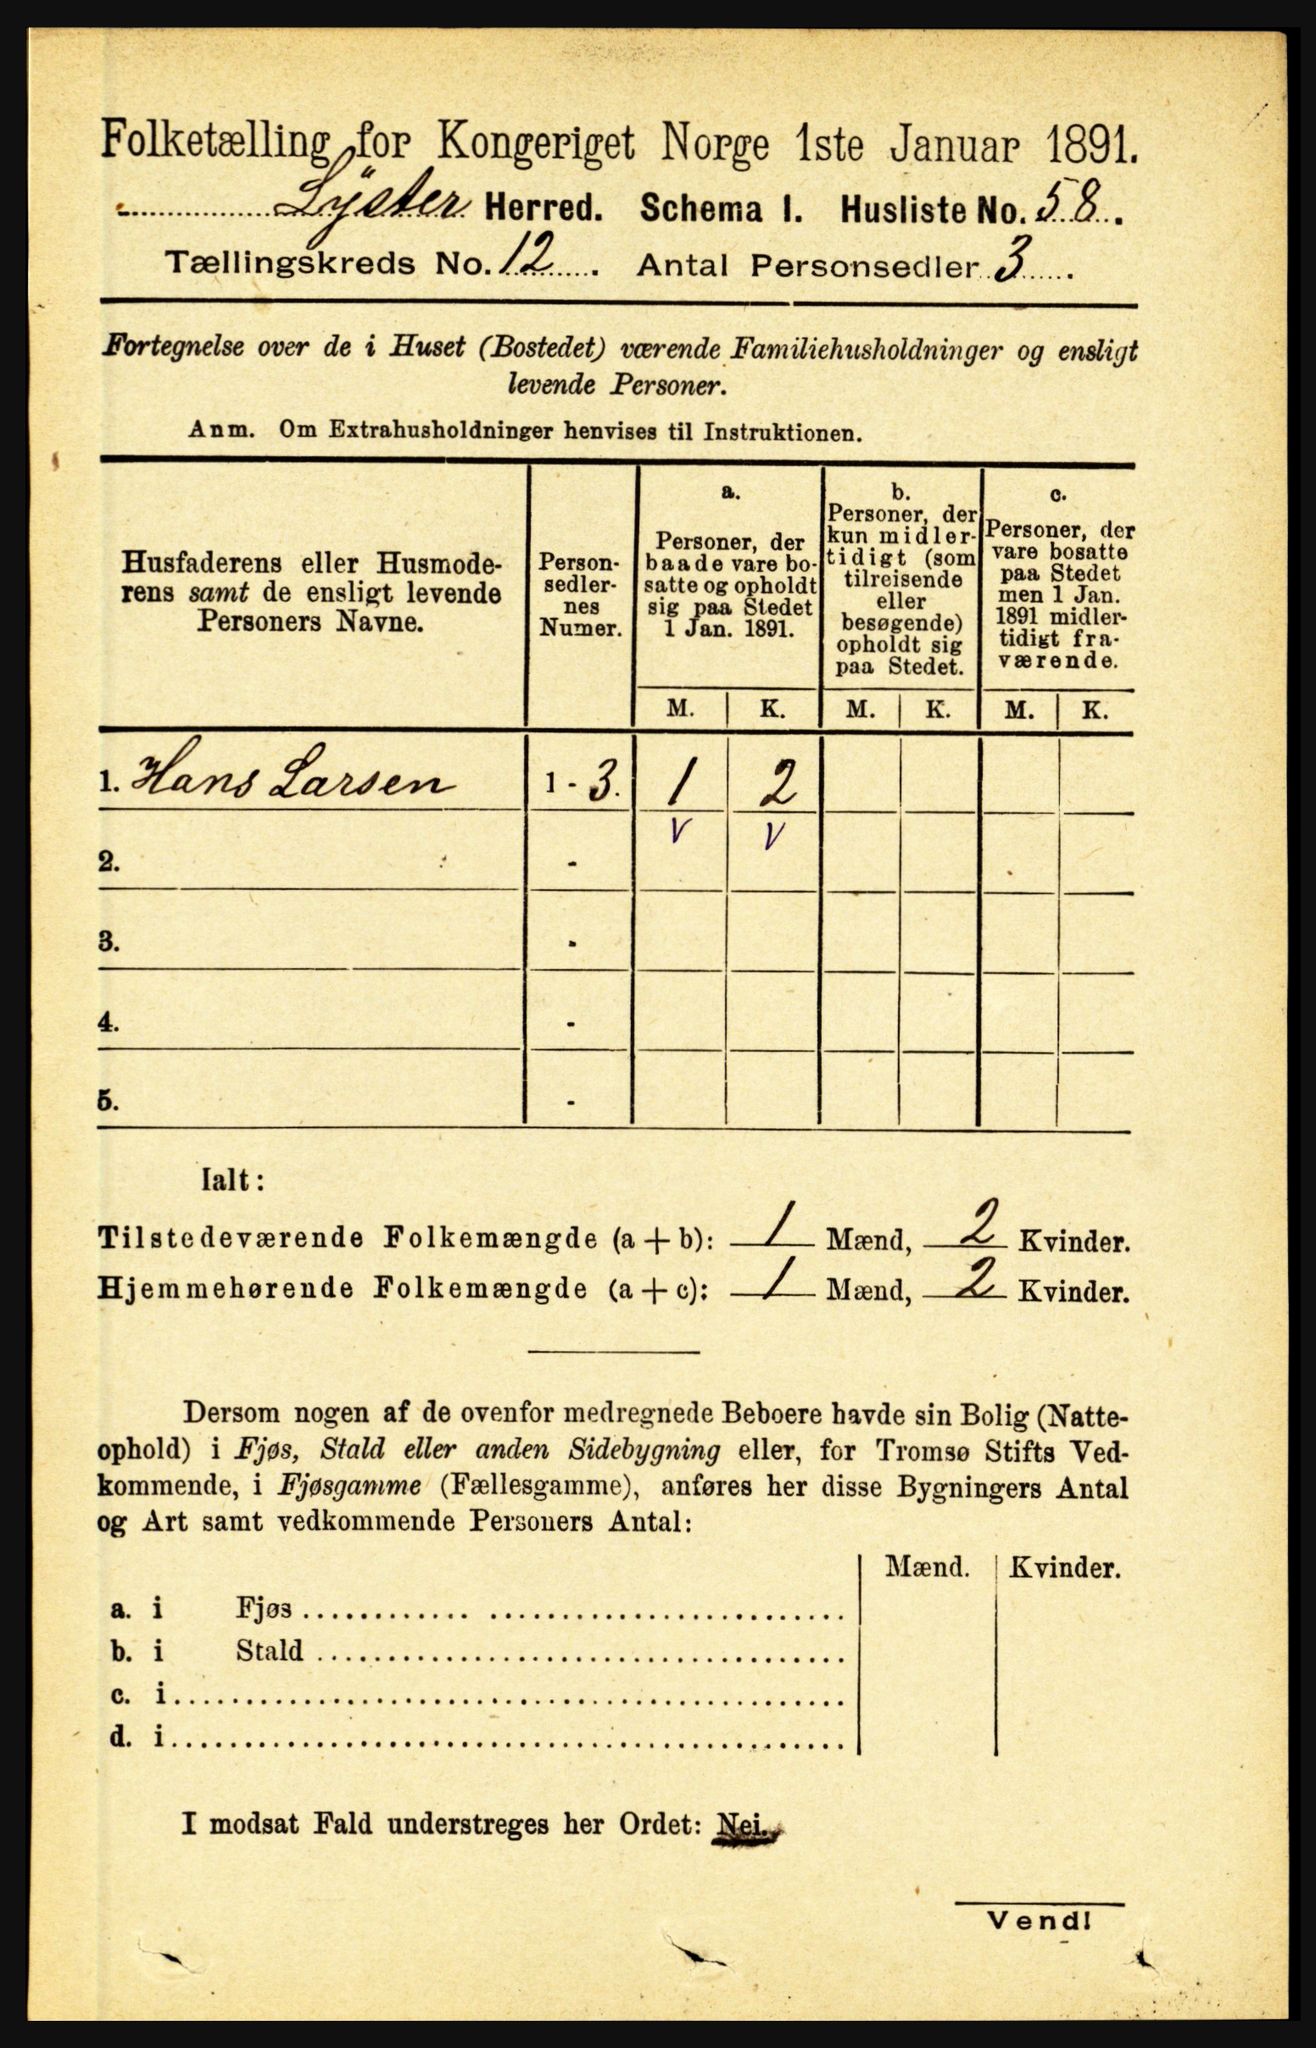 Folketælling for Kongeriget Norge 1ste Januar 1891.
Lyster Herred. Schema I. Husliste No. 58.
Tællingskreds No. 12. Antal Personsedler 3.
Fortegnelse over de i Huset (Bostedet) værende Familiehusholdninger og ensligt
levende Personer.
Anm. Om Extrahusholdninger henvises til Instruktionen.
Husfaderens eller Husmode-
rens samt de ensligt levende
Personers Navne.
Person-
sedler-
nes
Numer.
a.
Personer, der
baade vare bo-
satte og opholdt
sig paa Stedet
1 Jan. 1891.
b.
Personer, der
kun midler-
tidigt (som
tilreisende
eller
besøgende)
opholdt sig
paa Stedet.
c.
Personer, der
vare bosatte
paa Stedet
men 1 Jan.
1891 midler-
tidigt fra-
værende.
M. K. M. K. M. K.
1. Hans Larsen 1 - 3. 1 2
v v
2. -
3. -
4. -
5. -
Ialt:
Tilstedeværende Folkemængde (a + b): 1 Mænd, 2 Kvinder.
Hjemmehørende Folkemængde (a + c): 1 Mænd, 2 Kvinder.
Dersom nogen af de ovenfor medregnede Beboere havde sin Bolig (Natte-
ophold) i Fjøs, Stald eller anden Sidebygning eller, for Tromsø Stifts Ved-
kommende, i Fjøsgamme (Fællesgamme), anføres her disse Bygningers Antal
og Art samt vedkommende Personers Antal:
Mænd. Kvinder.
a. i Fjøs
b. i Stald
c. i
d. i
I modsat Fald understreges her Ordet: Nei.
Vend!